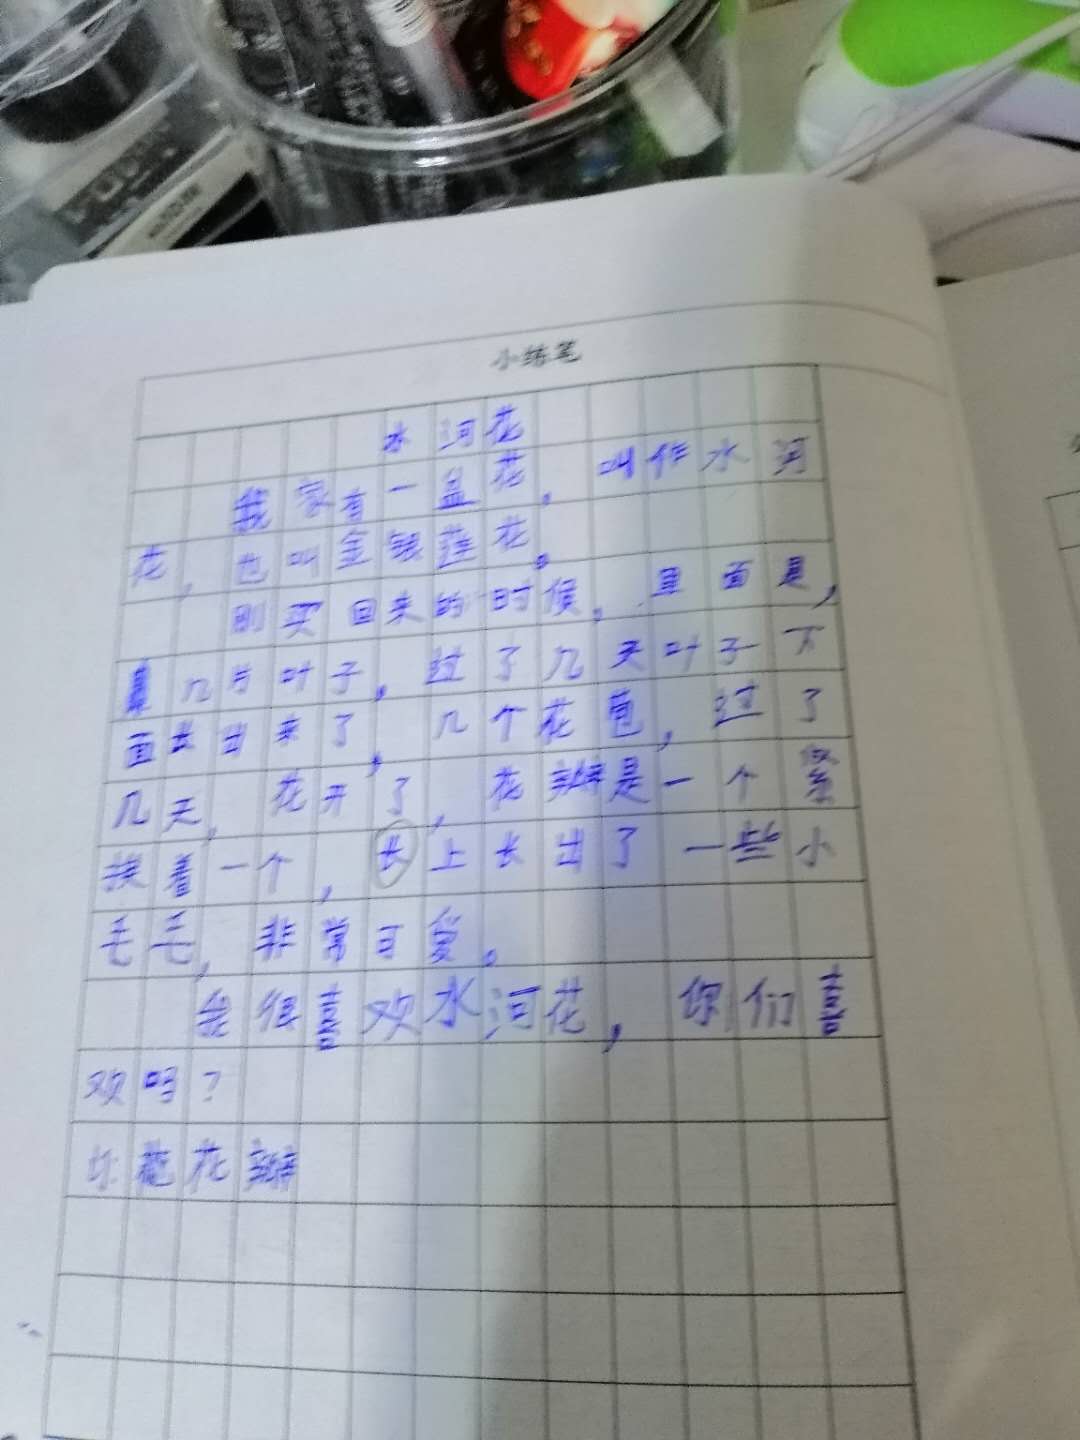 小练笔
水河花
我家有一盆花。叫作水河
花，也叫金银莲花。
刚买回来的时候。里面是，
几片叶子。过了几天叶子下
面长出来了，几个花苞，过了
几天，花开了，花瓣是一个紧
挨着一个，长上长出了一些小
毛毛，非常可爱。
我很喜欢水河花，你们喜
欢吗？
花花瓣